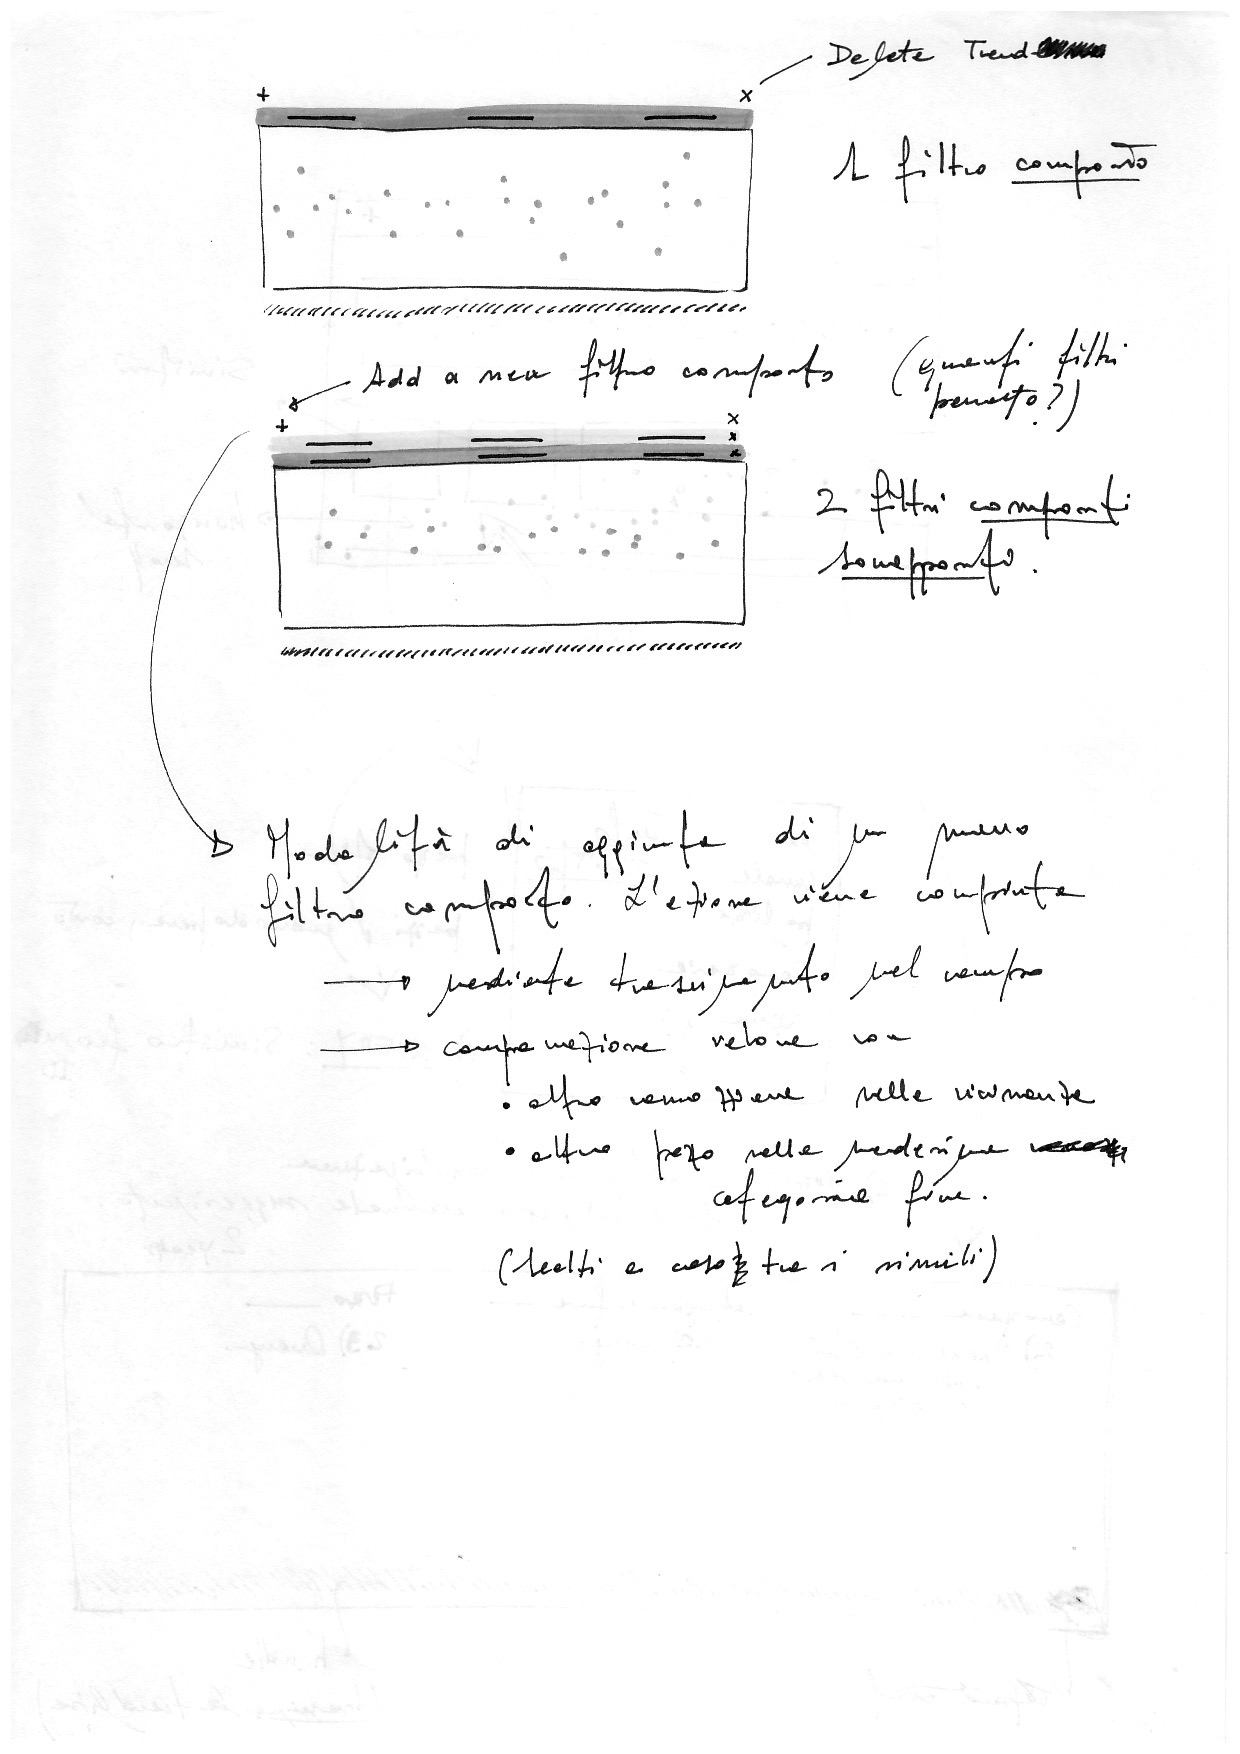 Delete Trend
+ x
1 filtro composto
Add a new filtro composto (quanti filtri
permetto?)
+ x
x
x
2 filtri composti
sovrapposti.
Modalità di aggiunta di un nuovo
filtro composto. L'azione viene compiuta
→ mediante trascinamento nel campo
→ comparazione veloce con
• altro cannone nelle vicinanze
• altro pezzo nella medesima
categoria fine.
(scelti a caso tra i simili)